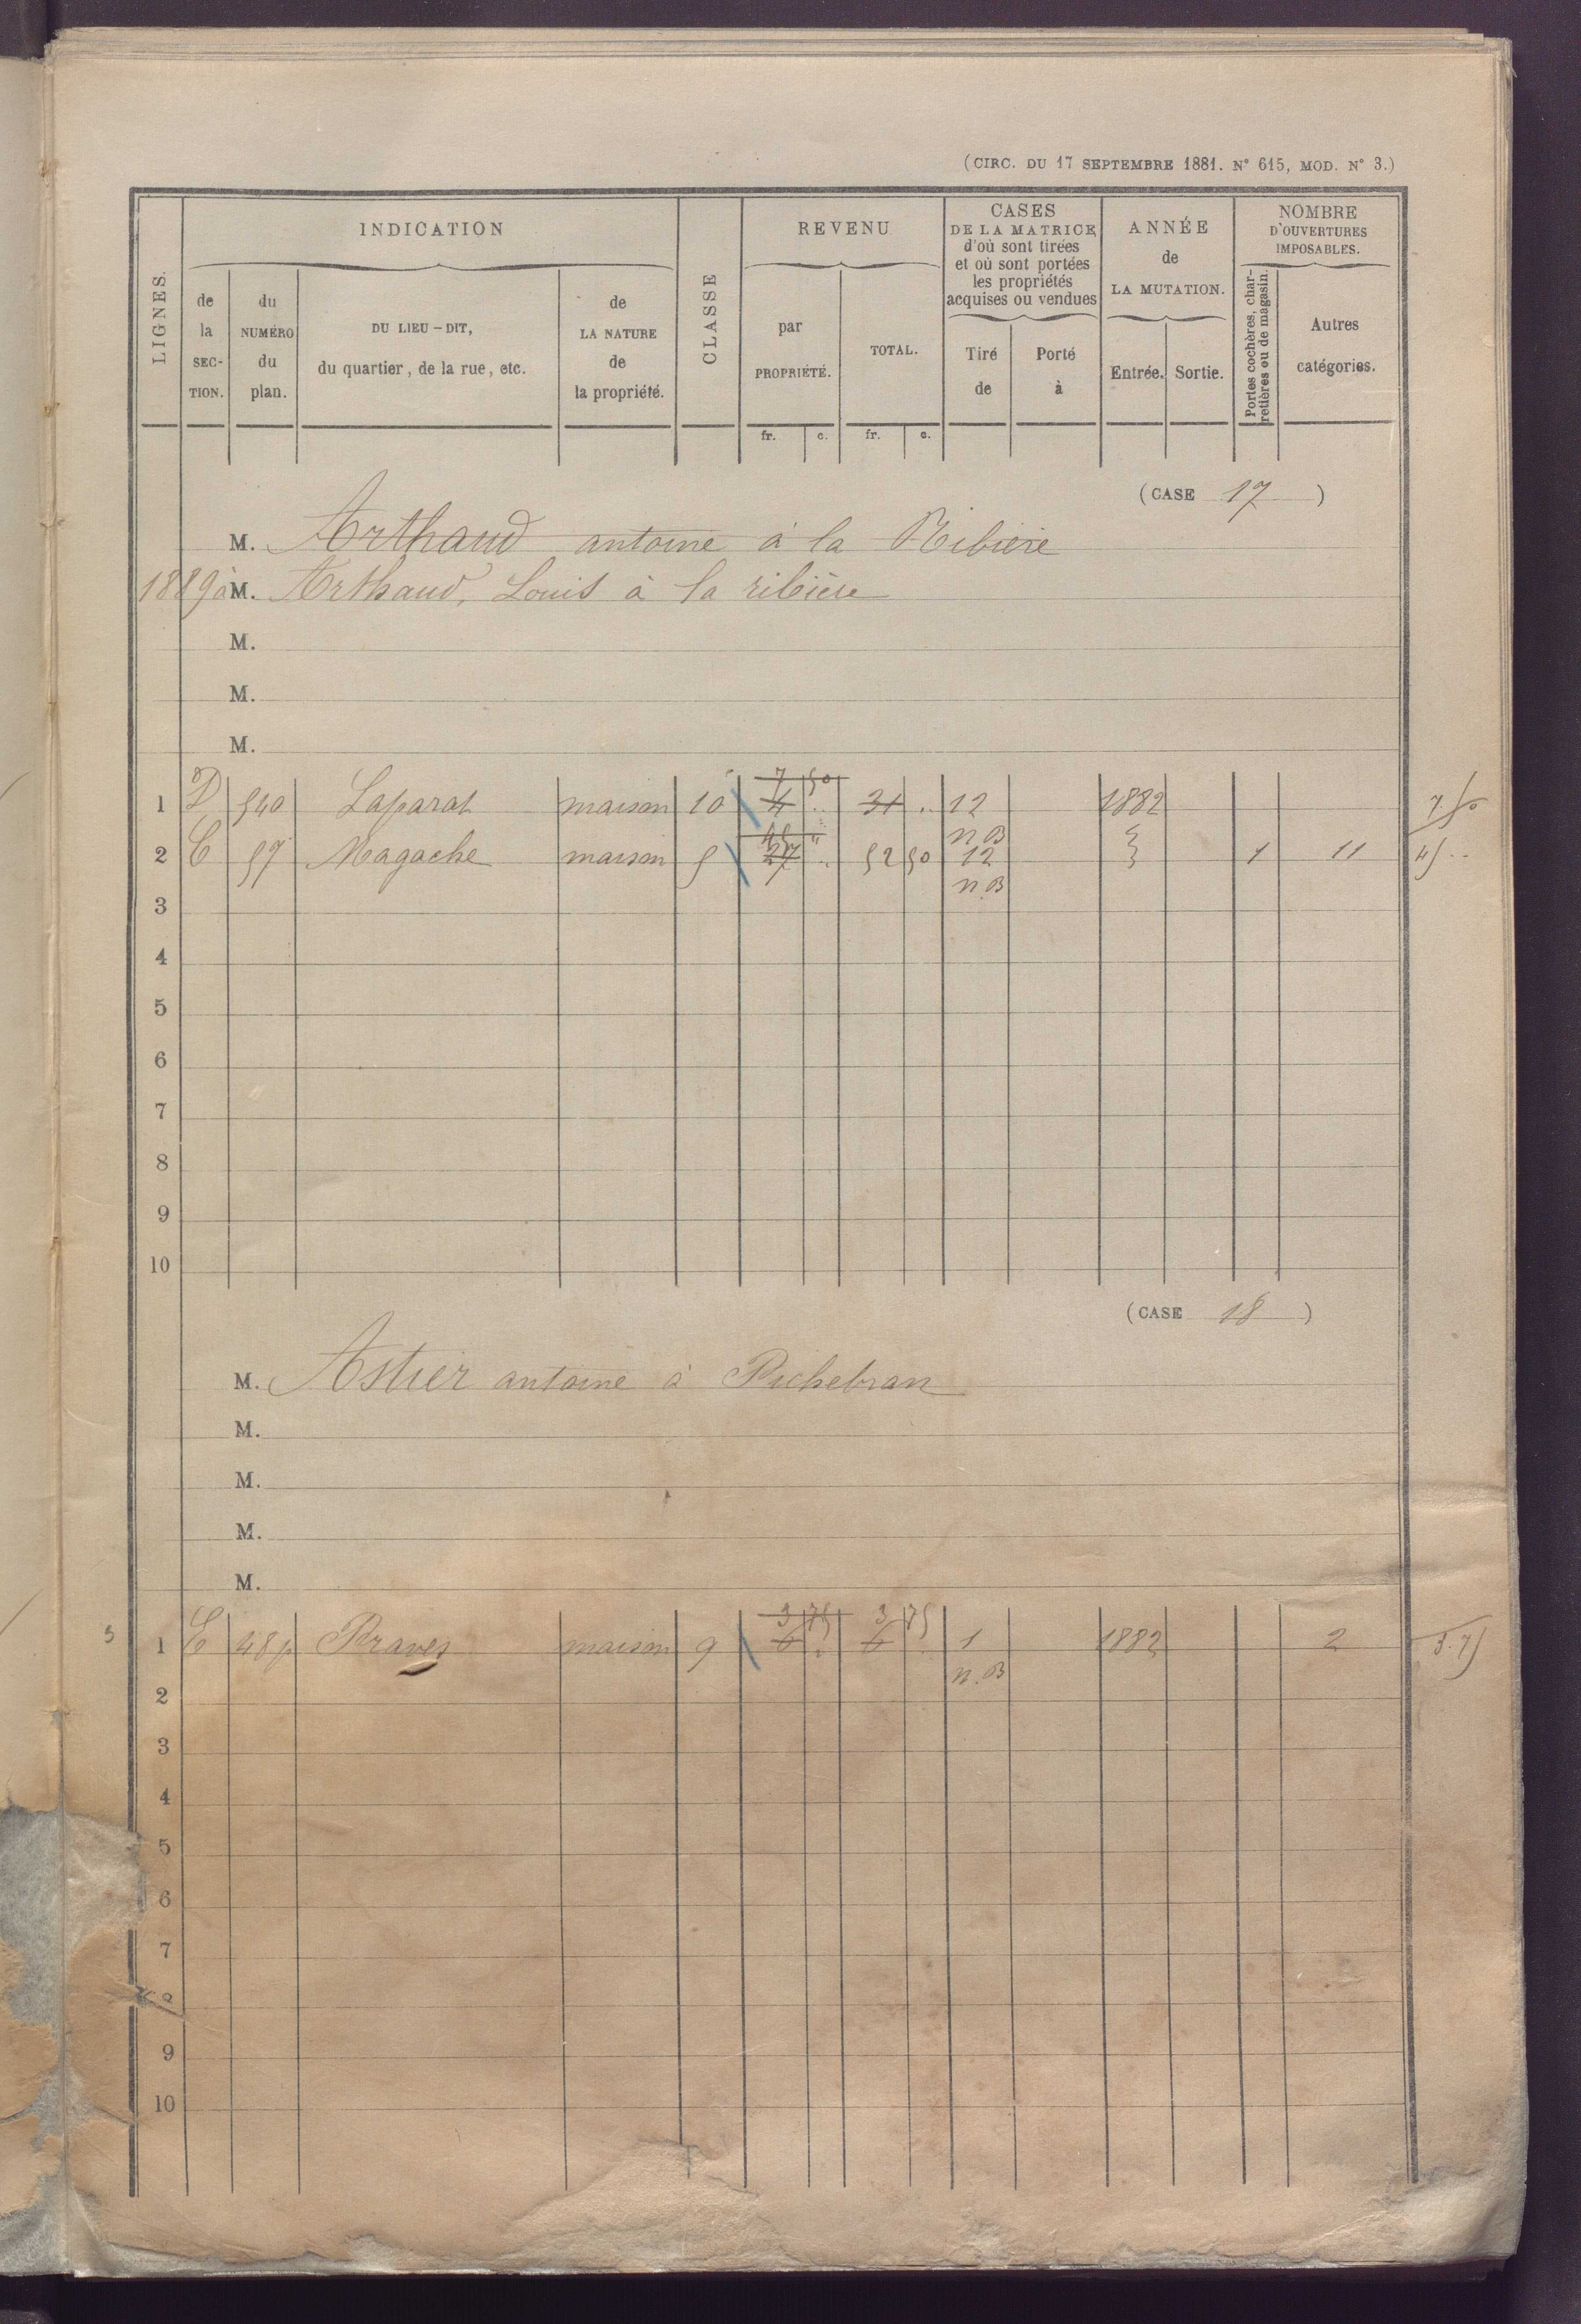 (CIRC. DU 17 SEPTEMBRE 1881. N° 615, MOD. N° 3.)
LIGNES.
INDICATION
CLASSE
REVENU
CASES
DE LA MATRICE
d'où sont tirées
et où sont portées
les propriétés
acquises ou vendues
ANNÉE
de
LA MUTATION.
NOMBRE
D'OUVERTURES
IMPOSABLES.
de
la
SEC-
TION.
du
NUMÉRO
du
plan.
DU LIEU-DIT,
du quartier, de la rue, etc.
de
LA NATURE
de
la propriété.
par
PROPRIÉTÉ.
TOTAL.
Tiré
de
Porté
à
Entrée.
Sortie.
Portes cochères, char-
retières ou de magasin.
Autres
catégories.
fr. c. fr. c.
(CASE 17 )
M. Arthaud antoine à la Ribière
1889 à M. Arthaud, Louis à la ribière
M.
M.
M.
7 50
1 D 540 Laparat maison 10 4 .. 31 .. 12 1882 7 50
45 " n.B
2 C 57 Magache maison 5 27 .. 52 50 12 1 11 45 ..
n.B
3
4
5
6
7
8
9
10
(CASE 18 )
M. Astier antoine à Pichebran
M.
M.
M.
M.
3 75 3 75
1 E 48p Praves maison 9 6 . 6 . 1 1882 2 3.75
n.B
2
3
4
5
6
7
8
9
10